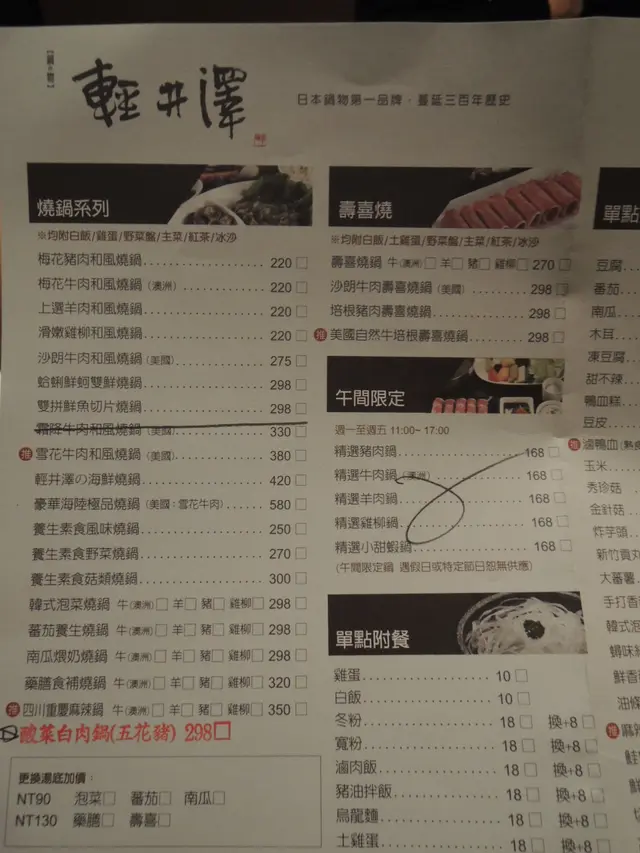 【鍋物】
輕井澤
日本鍋物第一品牌，蔓延三百年歷史
燒鍋系列
※均附白飯/雞蛋/野菜盤/主菜/紅茶/冰沙
梅花豬肉和風燒鍋 220 □
梅花牛肉和風燒鍋 (澳洲) 220 □
上選羊肉和風燒鍋 220 □
滑嫩雞柳和風燒鍋 220 □
沙朗牛肉和風燒鍋 (美國) 275 □
蛤蜊鮮蚵雙鮮燒鍋 298 □
雙拼鮮魚切片燒鍋 298 □
霜降牛肉和風燒鍋 (美國) 330 □
推 雪花牛肉和風燒鍋 (美國) 380 □
輕井澤の海鮮燒鍋 420 □
豪華海陸極品燒鍋 (美國：雪花牛肉) 580 □
養生素食風味燒鍋 250 □
養生素食野菜燒鍋 270 □
養生素食菇類燒鍋 300 □
韓式泡菜燒鍋 牛(澳洲)□ 羊□ 豬□ 雞柳□ 298 □
蕃茄養生燒鍋 牛(澳洲)□ 羊□ 豬□ 雞柳□ 298 □
南瓜煨奶燒鍋 牛(澳洲)□ 羊□ 豬□ 雞柳□ 298 □
藥膳食補燒鍋 牛(澳洲)□ 羊□ 豬□ 雞柳□ 320 □
推 四川重慶麻辣鍋 牛(澳洲)□ 羊□ 豬□ 雞柳□ 350 □
酸菜白肉鍋(五花豬) 298□
更換湯底加價：
NT90 泡菜□ 蕃茄□ 南瓜□
NT130 藥膳□ 壽喜□
壽喜燒
※均附白飯/土雞蛋/野菜盤/主菜/紅茶/冰沙
壽喜燒鍋 牛(澳洲)□ 羊□ 豬□ 雞柳□ 270 □
沙朗牛肉壽喜燒鍋 (美國) 298 □
培根豬肉壽喜燒鍋 298 □
推 美國自然牛培根壽喜燒鍋 298 □
午間限定
週一至週五 11:00~ 17:00
精選豬肉鍋 168 □
精選牛肉鍋 (澳洲) 168 □
精選羊肉鍋 168 □
精選雞柳鍋 168 □
精選小甜蝦鍋 168 □
(午間限定鍋 遇假日或特定節日恕無供應)
單點附餐
雞蛋 10 □
白飯 10 □
冬粉 18 □ 換+8 □
寬粉 18 □ 換+8 □
滷肉飯 18 □ 換+8 □
豬油拌飯 18 □ 換+8 □
烏龍麵 18 □ 換+8 □
土雞蛋 18 □ 換+8 □
單點
豆腐
番茄
南瓜
木耳
凍豆腐
甜不辣
鴨血糕
豆皮
推 滷鴨血
玉米
秀珍菇
金針菇
炸芋頭
新竹貢丸
大蕃薯
手打香
韓式泡
蟳味
鮮香
油條
推 麻辣